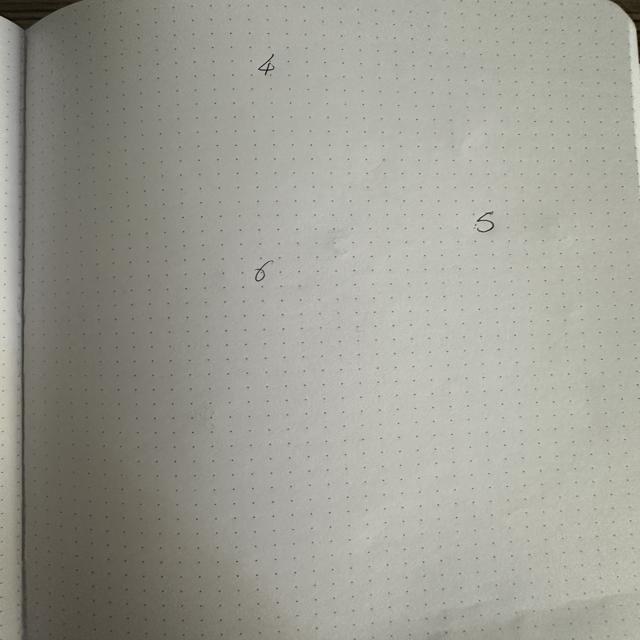 4
5
6